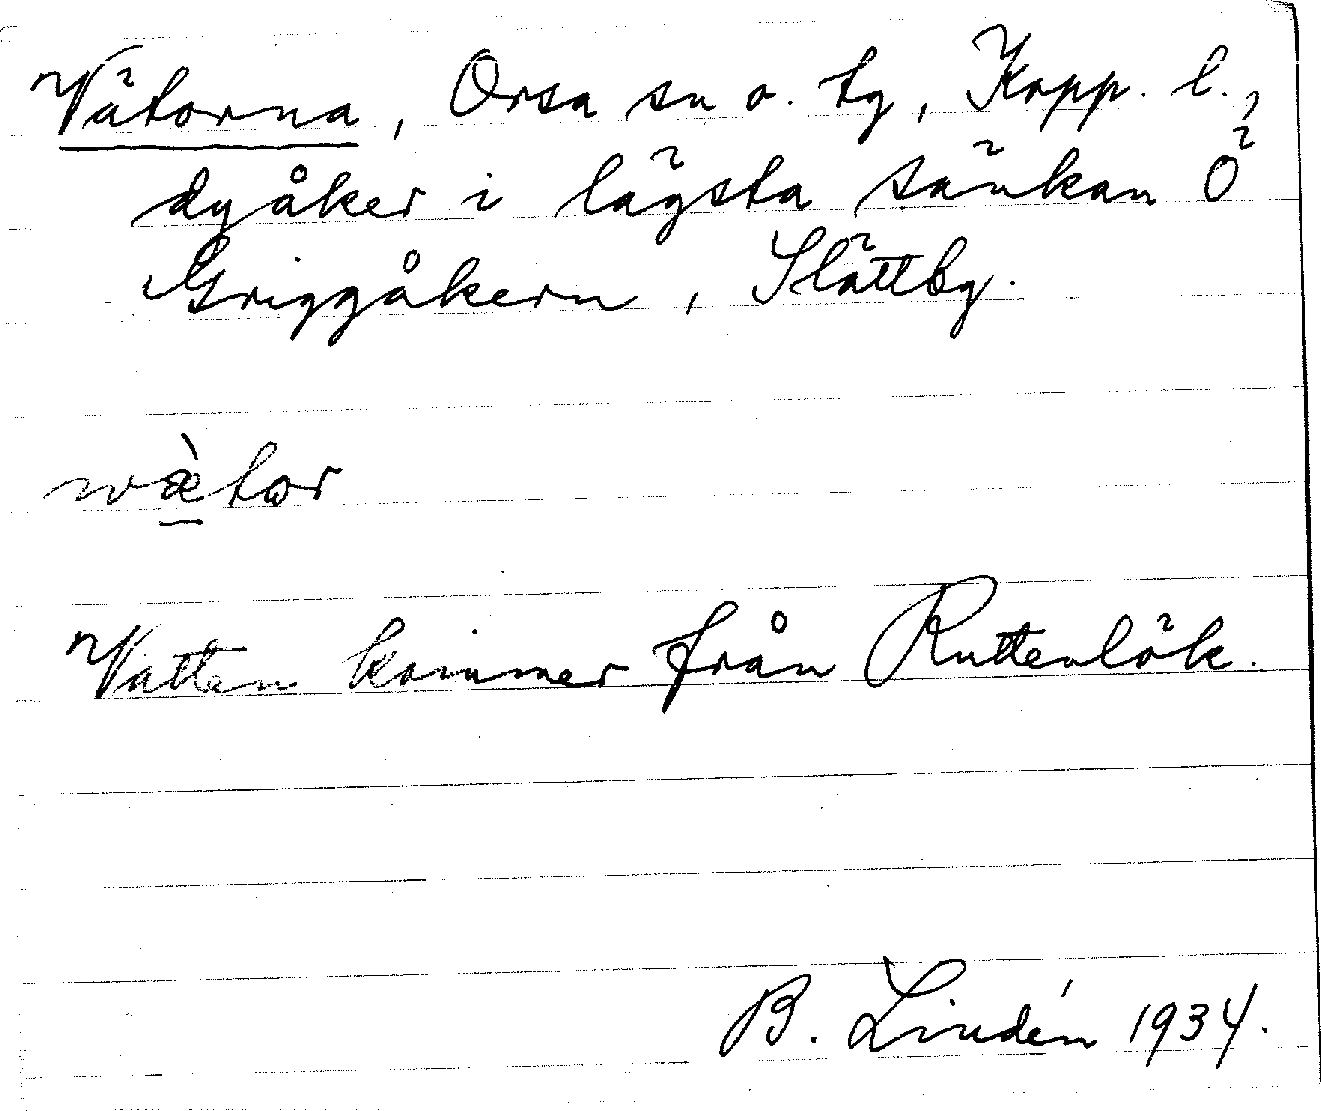 Vätorna, Orsa sn o. tg, Kopp. l.,
dyåker i lägsta sänkan Ö
Griggåkern, Slättbg.
wæ̀tor
Vatten kommer från Ruttenlök.
B. Lindén 1934.